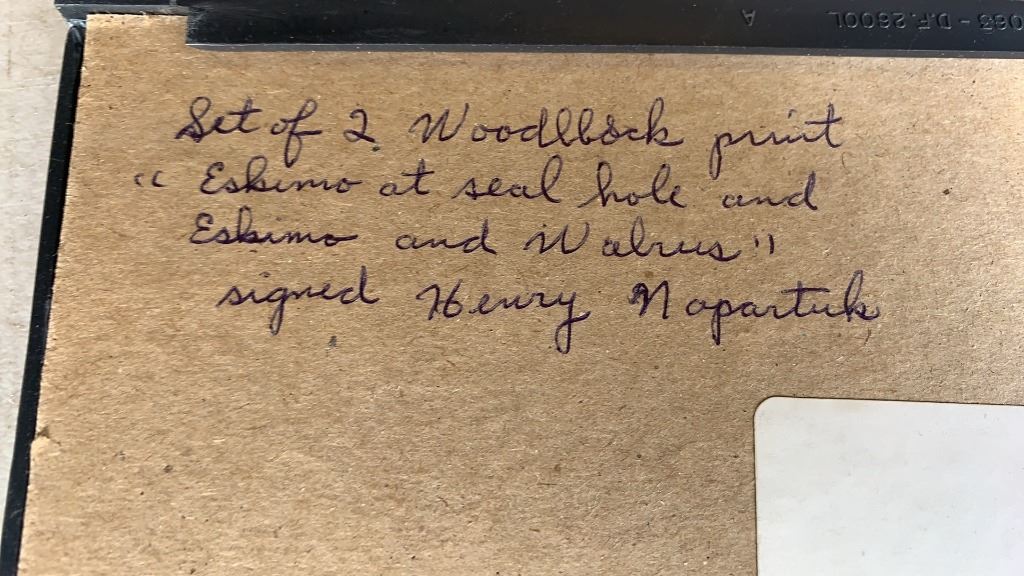 063 - D.F. 2600L A
Set of 2 Woodlbock print
“ Eskimo at seal hole and
Eskimo and Walrus "
signed Henry Napartuk